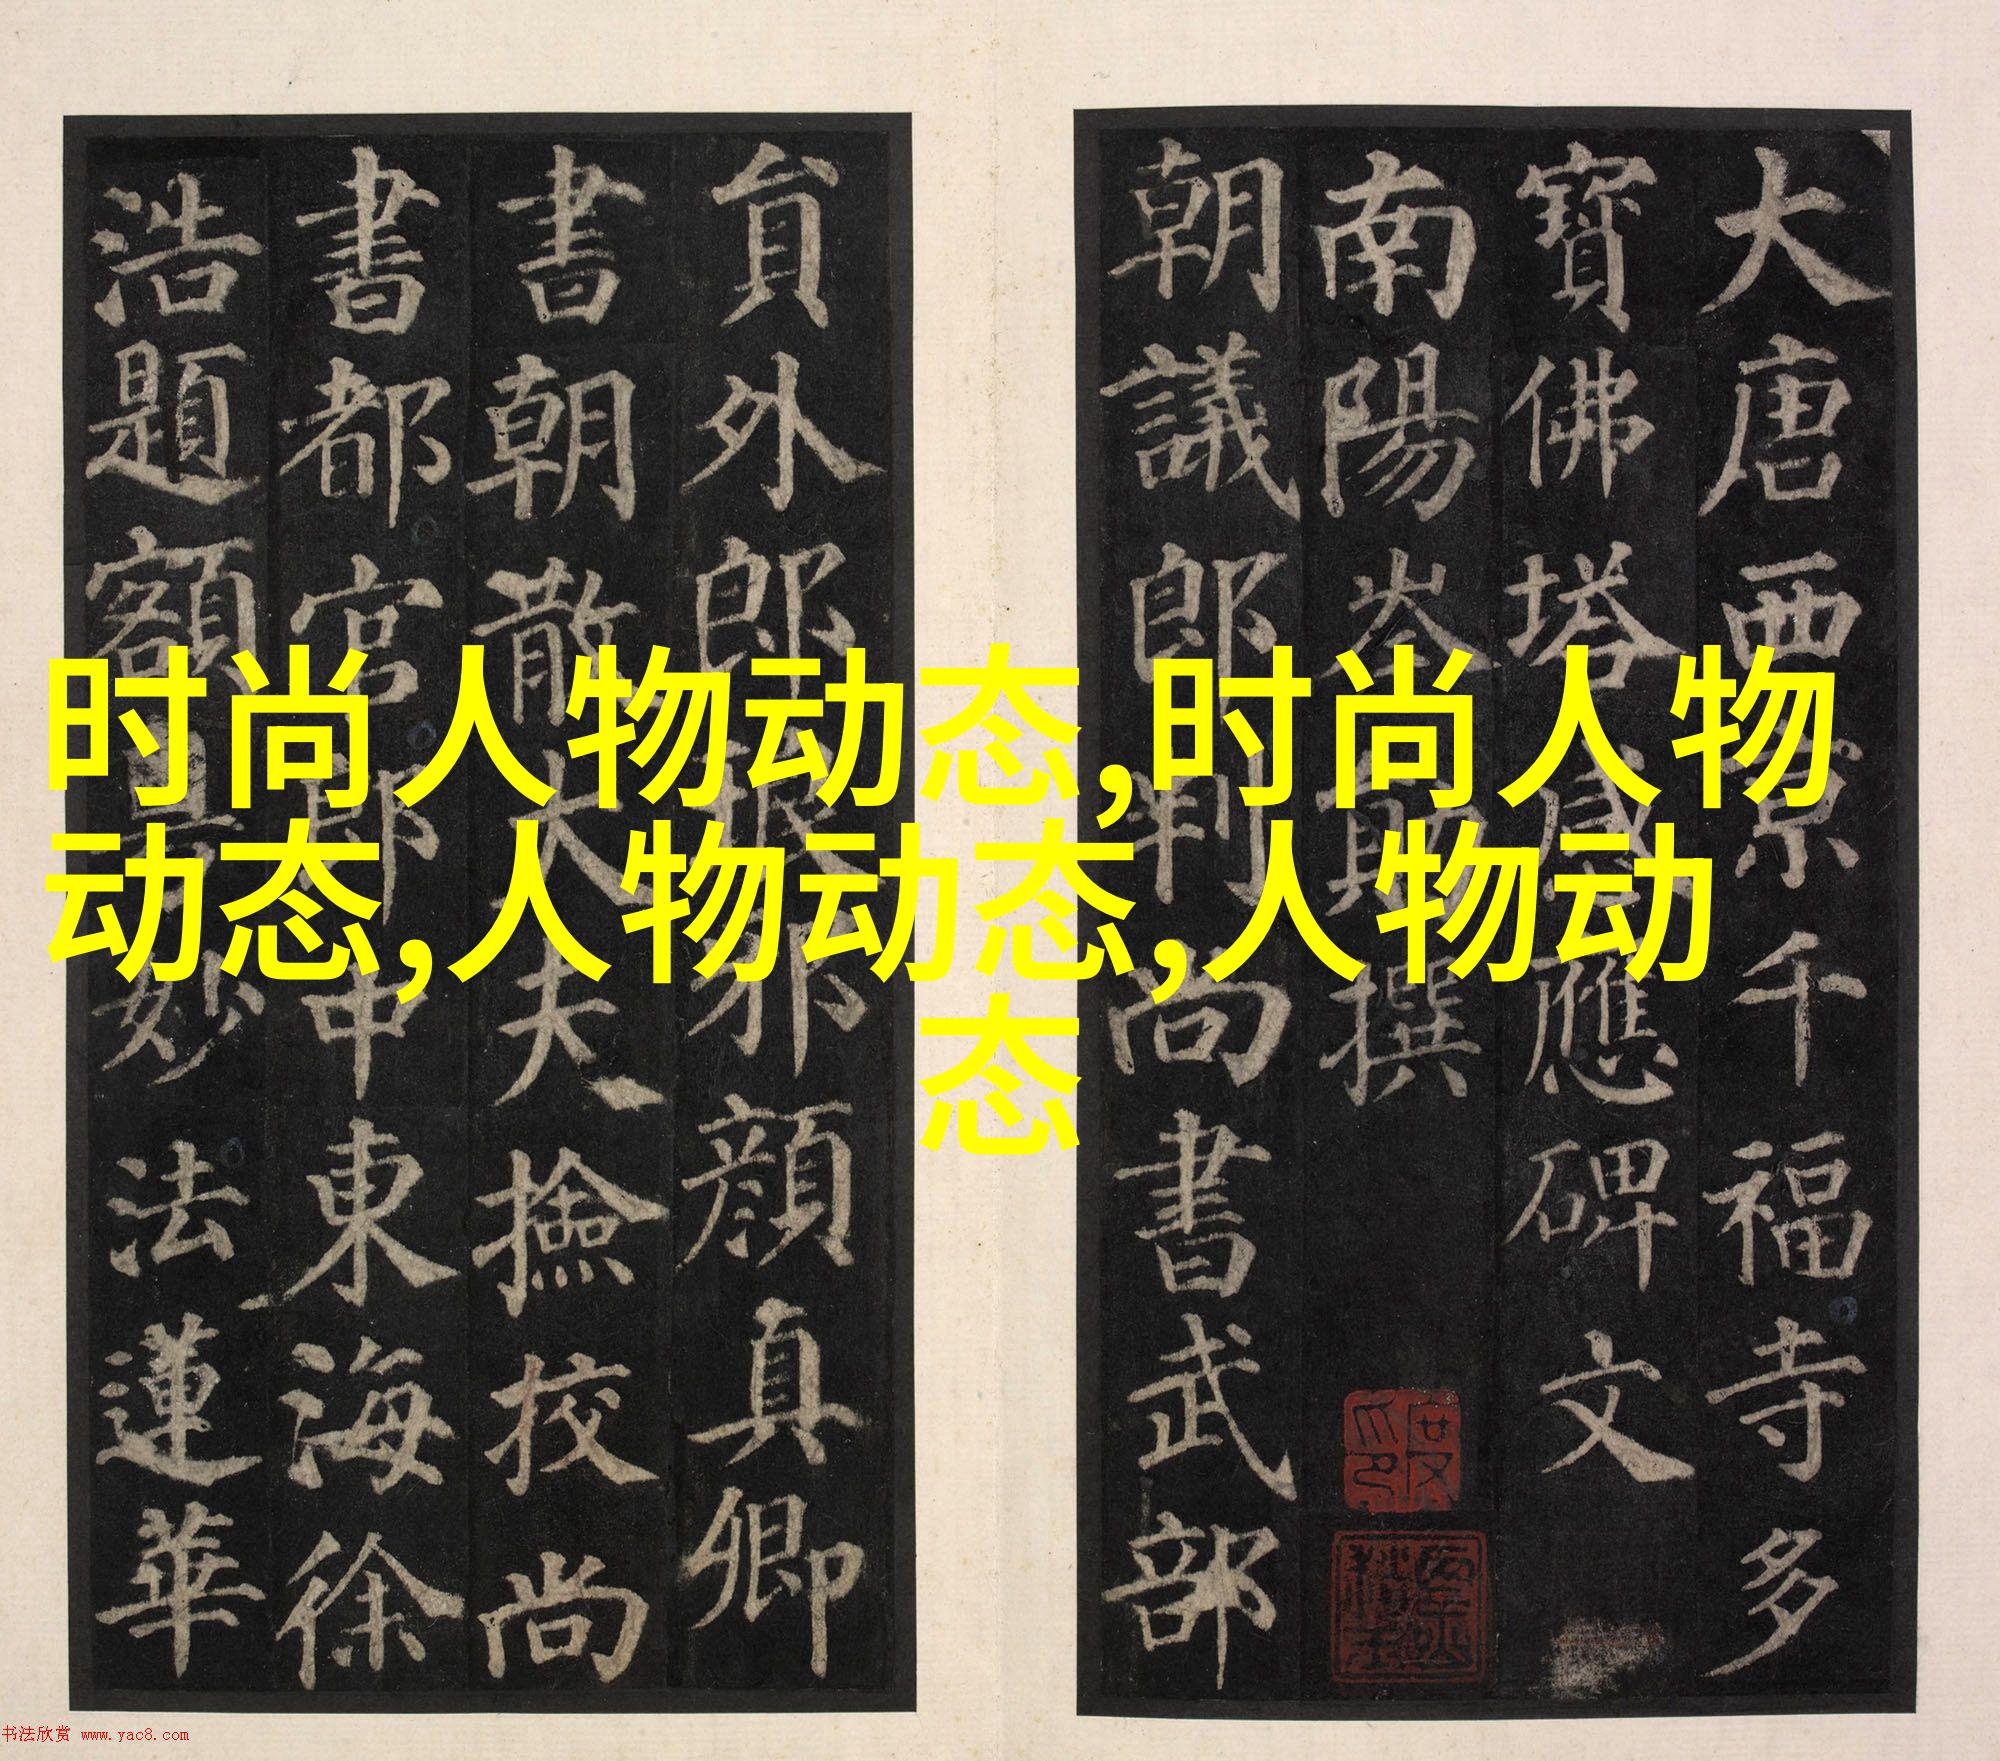 大唐西京千福寺多
寶佛塔感應碑文
南陽岑勛撰
朝議郎判尚書武部
貟外郎琅邪顏真卿
書朝散大夫撿校尚
書都官郎中東海徐
浩題額
妙法蓮華
时尚人物动态,时尚人物
动态,人物动态,人物动
态
书法欣赏 www.yac8.com